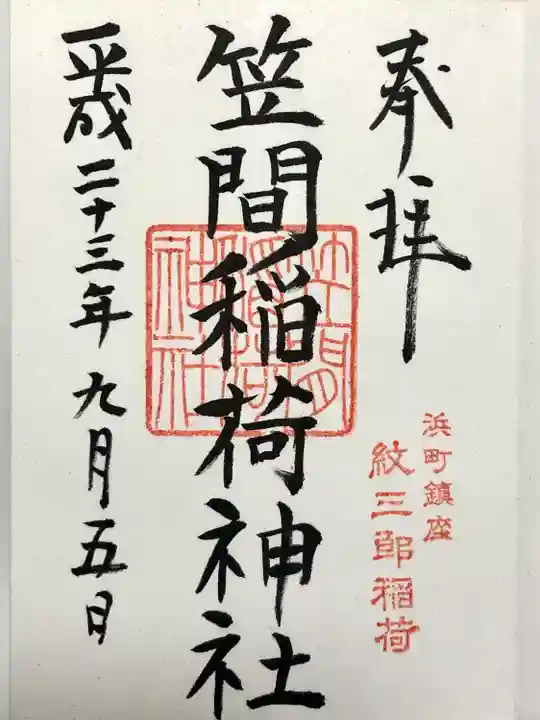 奉拝
浜町鎮座
紋三郎稲荷
笠間稲荷神社
笠間稲荷神社
平成二十三年九月五日